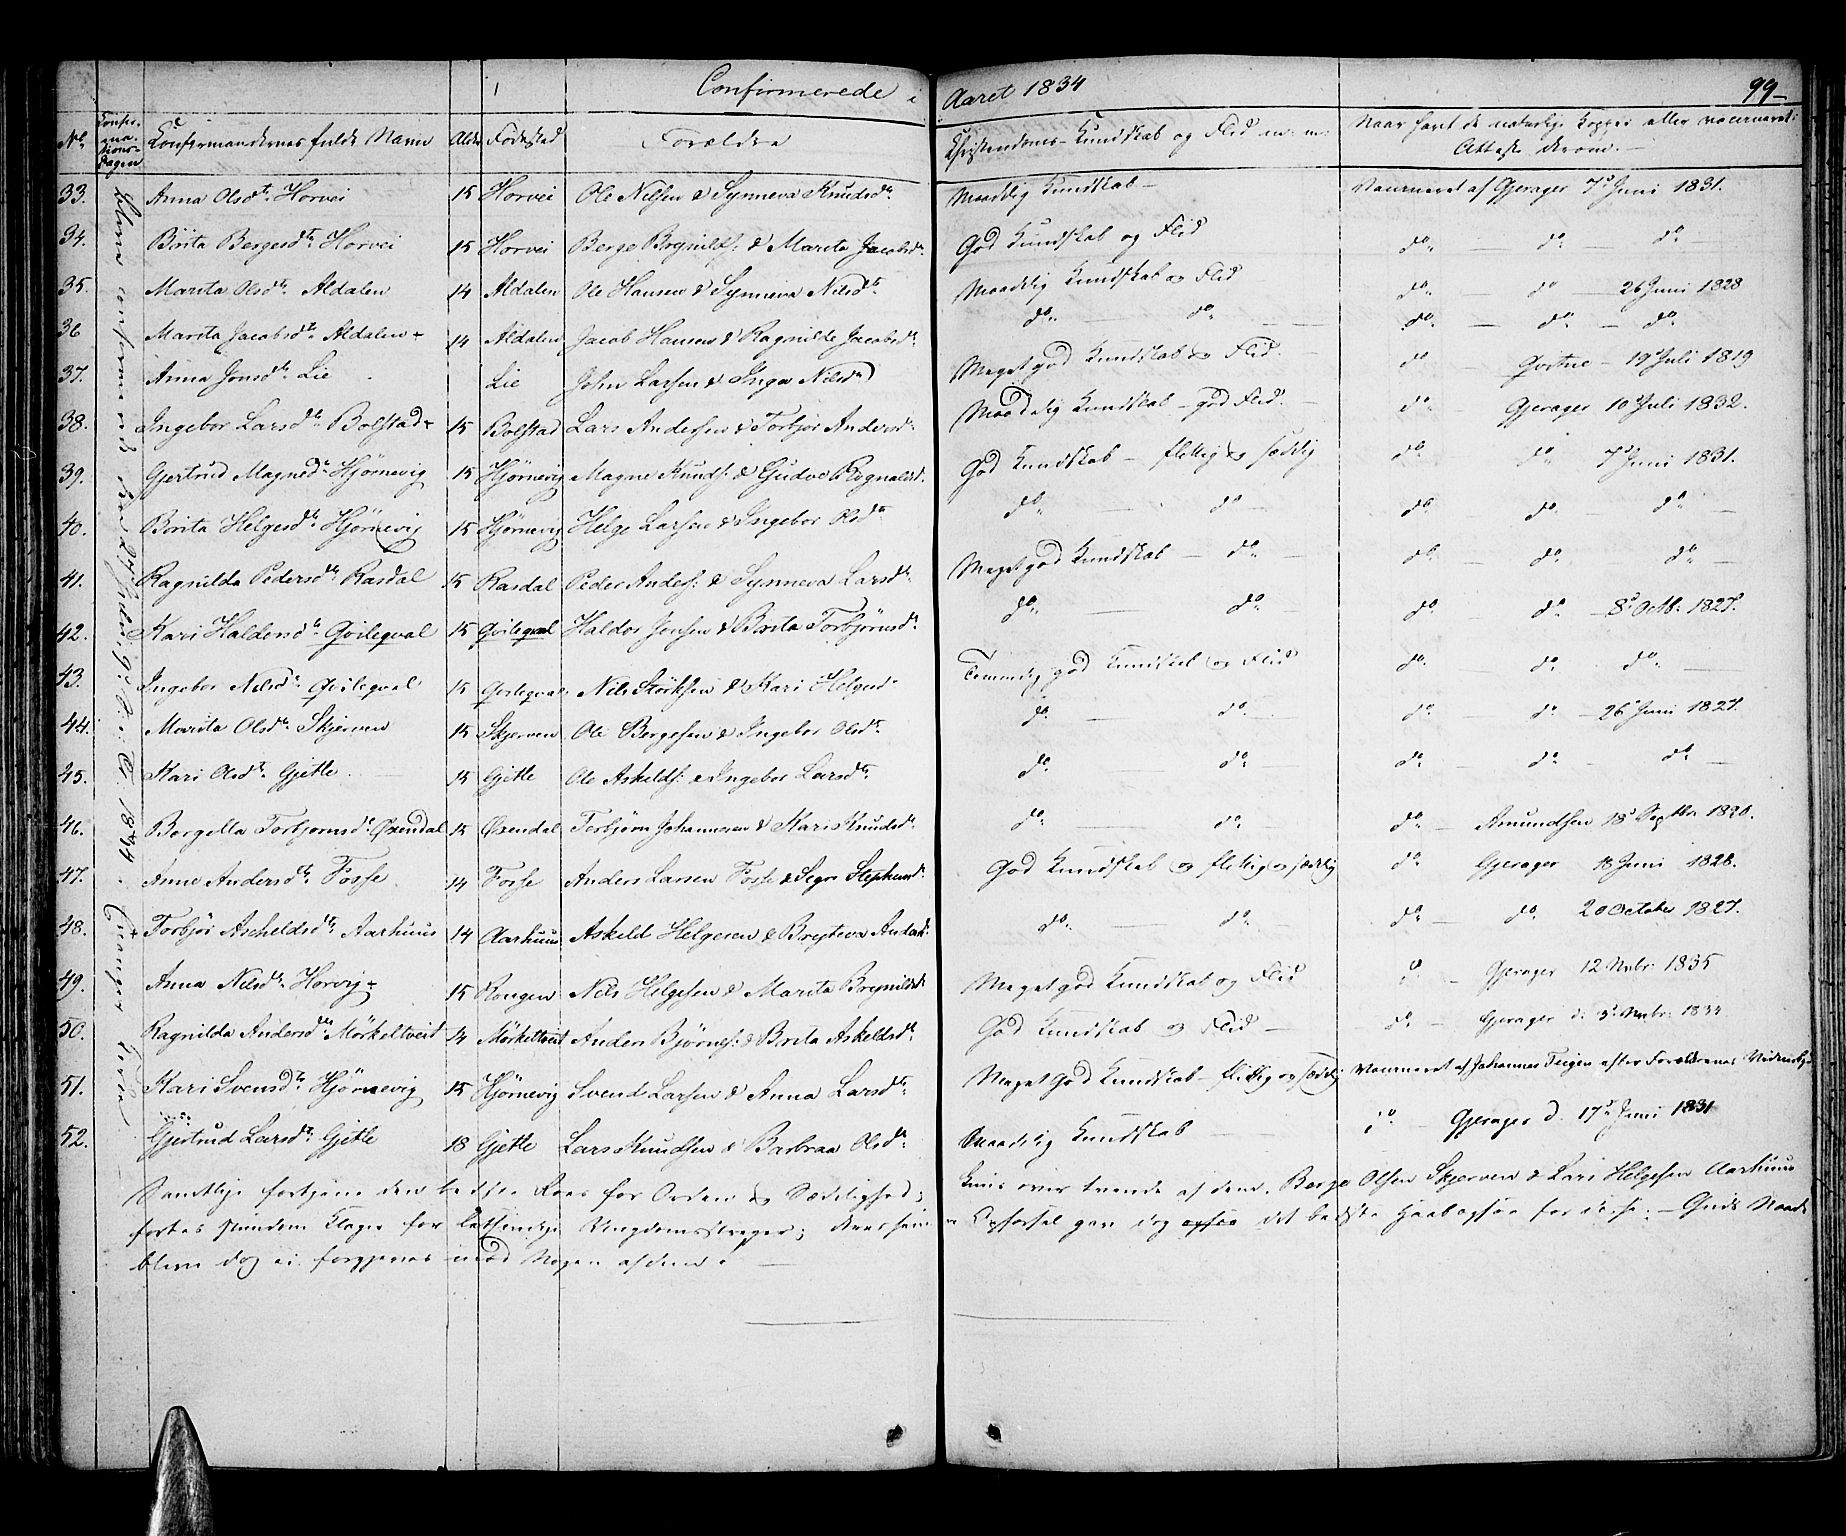 Confirmerede i Aaret 1834 99
No Confirmations Dagen Confirmandernes fulde Navn Alder Fødested Forældre Christendoms-Kundskab og Flid m: m: Naar havt de naturlige Kopper eller vaccineret; Attester derom.
33. Anna Olsdtr Horvei 15 Horvei Ole Nilsen & Synneva Knudsdr Maadelig Kundskab - Vaccineret af Gjerager 7de Juni 1831.
34. Brita Bergesdtr Horvei 15 Horvei Berge Brynilds: & Marita Jacobsdr God Kundskab og Flid do do do
35. Marita Olsdtr Aldalen 14 Aldalen Ole Hansen & Synneva Nilsdtr Maadelig Kundskab og Flid do do 26 Juni 1828
36 Marita Jacobsdtr Aldalen 14 Aldalen Jacob Hansen & Ragnilde Jacobsdr do do do do do
37. Anna Jonsdtr Lie Lie John Larsen & Inga Nilsd Meget god Kundskab og Flid. do 19 Juli 1819
38. Ingebor Larsdtr Bolstad 15 Bolstad Lars Andersen & Torbjør Andersdr Maadelig Kundskab - god Flid. do Gjerager 10 Juli 1832.
39. Gjertrud Magnedr Hjørnevig 15 Hjørnevig Magne Knuds: & Gudve Rognaldsd. God Kundskab - flittig og sædelig do do 7de Juni 1831.
40. Brita Helgesdtr Hjørnevig 15 Hjørnevig Helge Larsen & Ingebor Olsdtr do do do do do
41. Ragnilda Pedersdtr Rasdal 15 Rasdal Peder Anders: & Synneva Larsdtr Meget god Kundskab - do do do do
42. Kari Haldorsdtr Qvileqval 15 Qvileqval Haldor Jonsen & Brita Torbjørnsdr do do do do 8de Octb: 1827.
43. Ingebor Nilsdtr Qvileqval 15 Qvileqval Nils Størksen & Kari Helgesd Temmelig god Kundskab og Flid do do do
44. Marita Olsdtr Skjerven 15 Skjerven Ole Bergesen & Ingebor Olsdtr do do do do 26 Juni 1827.
45. Kari Olsdtr Gjetle 15 Gjetle Ole Askelds: & Ingebor Larsdtr do do do do do
46. Bergella Torbjørnsd Øxendal 15 Øxendal Torbjørn Johannesen & Kari Knudsdr do do do Amundsen 18 Septbr 1820.
47. Anne Andersdtr Fosse 14 Fosse Anders Larsen Fosse & Segri Stephensd God Kundskab og flittig og sædelig do Gjerager 18 Juni 1828.
48. Torbjør Ascheldsdtr Aarhuus 14 Aarhuus Askild Helgesen & Brytteva Andersd: do do do do 20 October 1827.
49. Anna Nilsdtr Horvej 15 Rongen Nils Helgesen & Marita Brynildsdr Meget god Kundskab og Flid do Gjerager 12 Nvbr 1835
50. Ragnilda Andersdtr Mørkeltveit 14 Mørkeltveit Anders Bjørnes: & Brita Askeldsdtr God Kundskab og Flid do Gjerager d: 5 Nvbr:
51. Kari Svensdtr Hjørnevig 15 Hjørnevig Svend Larsen & Anna Larsdtr Meget God Kundskab - flittig og sædelig Vaccineret af Johannes Teigen efter Forældrenes Vidnesby
52. Gjertrud Larsdtr Gjetle 18 Gjetle Lars Knudsen & Barbraa Olsdtr Maadelig Kundskab do Gjerager d. 17de Juni 1831
Samtlige fortjene den bedste Roes for Orden og Sædelighed; kuns over tvende af dem, Berge Olsen Skjerven & Lars Helgesen Aarhuus
førtes stundom Klager for letsindige Ungdomsstreger; deres senere Opførsel gav dog det bedste Haab ogsaa for disse. - Guds Naade
blive dog ei forgjæves mod Nogen af dem!